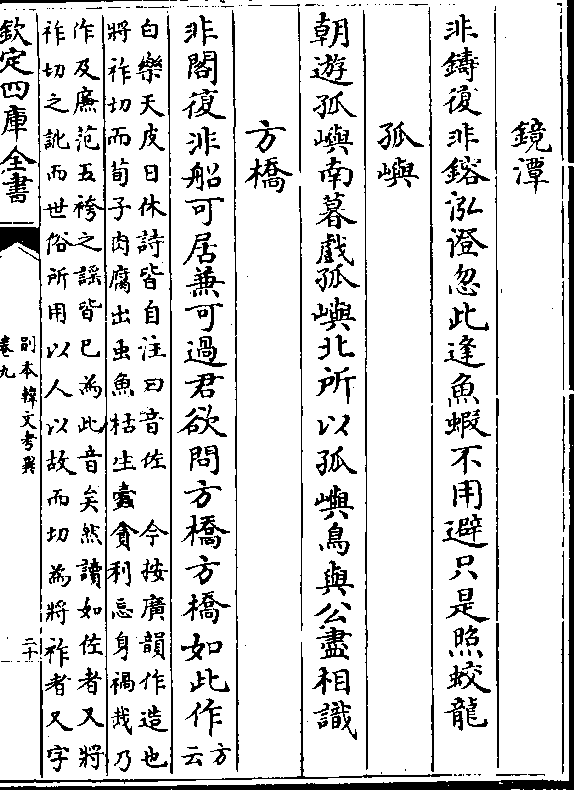 鏡潭
非鑄復非鎔泓澄忽此逢魚蝦不用避只是照蛟龍
孤嶼
朝遊孤嶼南暮戲孤嶼北所以孤嶼鳥與公盡相識
方橋
非閣復非船可居兼可過君欲問方橋方橋如此作方云
白樂天皮日休詩皆自注曰音佐 今按廣韻作造也
將祚切而荀子肉腐出虫魚枯生蠧貪利忘身禍烖乃
作及㢘范五袴之謡皆已為此音矣然讀如佐者又將
祚切之訛而世俗所用以人以故而切為將祚者又字
欽定四庫全書
别本韓文考異
卷九
二十